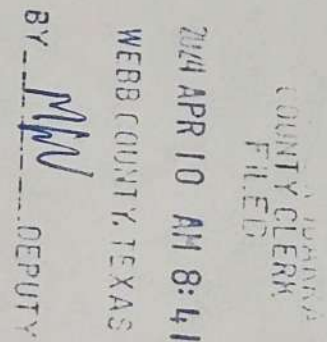 COUNTY CLERK
FILED
2024 APR 10 AM 8:41
WEBB COUNTY, TEXAS
BY DEPUTY